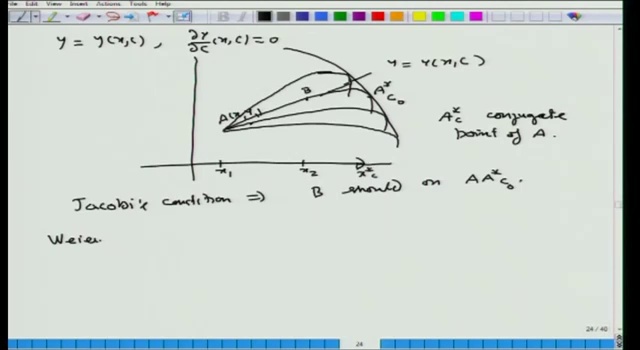 File View Insert Actions Tools Help
y = y(x,c) , ∂y/∂c (x,c) = 0
y = y(x,c)
B
A*c₀
A(x₁,y₁)
A*c conjugate
point of A.
x₁ x₂ x*c
Jacobi's condition ⇒ B should on AA*c₀.
Weier
24 / 40
24